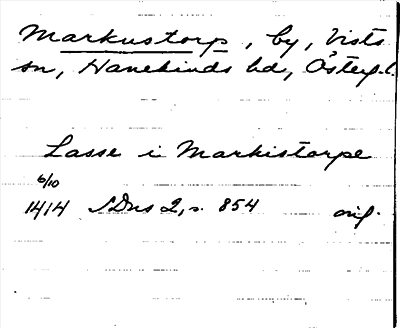 Markustorp, by, Vists
sn, Hanekinds hd, Östergl.
Lasse i Markistorpe
6/10
1414 SDns 2, s. 854 orig.